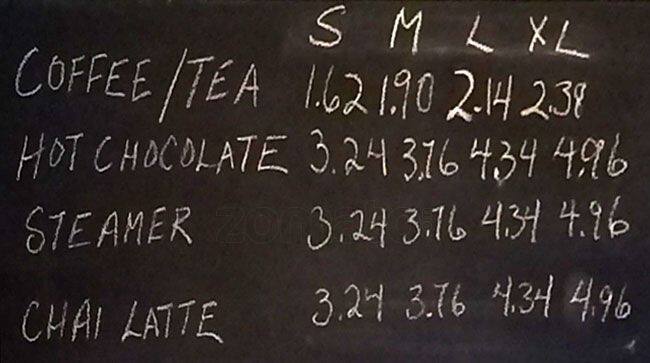 S M L XL
COFFEE/TEA 1.62 1.90 2.14 2.38
HOT CHOCOLATE 3.24 3.76 4.34 4.96
STEAMER 3.24 3.76 4.34 4.96
CHAI LATTE 3.24 3.76 4.34 4.96